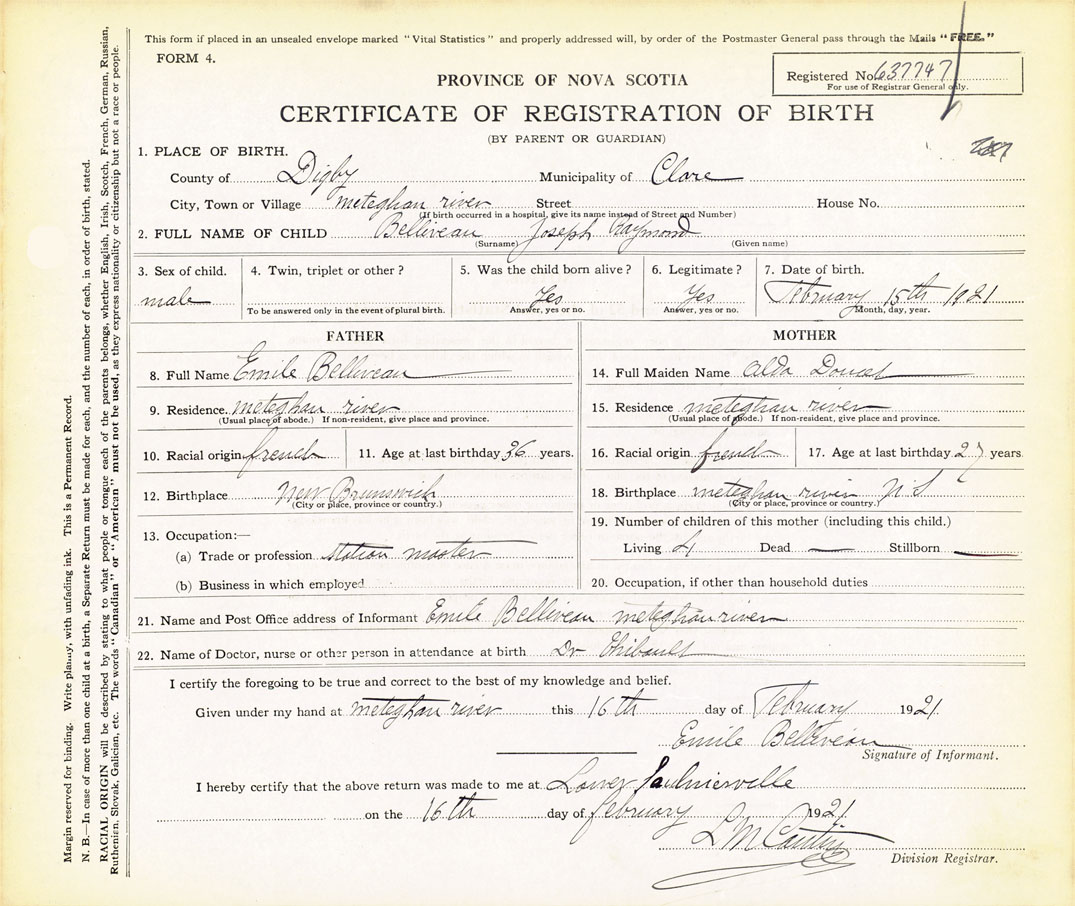 This form if placed in an unsealed envelope marked "Vital Statistics" and properly addressed will, by order of the Postmaster General pass through the Mails "FREE."
FORM 4.
Registered No. 637747
For use of Registrar General only.
PROVINCE OF NOVA SCOTIA
CERTIFICATE OF REGISTRATION OF BIRTH
(BY PARENT OR GUARDIAN)
1. PLACE OF BIRTH.
County of Digby Municipality of Clare
City, Town or Village Meteghan river Street House No.
(If birth occurred in a hospital, give its name instead of Street and Number)
2. FULL NAME OF CHILD Belliveau Joseph Raymond
(Surname) (Given name)
3. Sex of child. 4. Twin, triplet or other? 5. Was the child born alive? 6. Legitimate? 7. Date of birth.
male Yes Yes February 15th 1921
To be answered only in the event of plural birth. Answer, yes or no. Answer, yes or no. Month, day, year.
FATHER
8. Full Name Emile Belliveau
9. Residence. meteghan river
(Usual place of abode.) If non-resident, give place and province.
10. Racial origin french 11. Age at last birthday 36 years.
12. Birthplace New Brunswick
(City or place, province or country.)
13. Occupation:—
(a) Trade or profession station master
(b) Business in which employed
MOTHER
14. Full Maiden Name Alda Doucet
15. Residence meteghan river
(Usual place of abode.) If non-resident, give place and province.
16. Racial origin french 17. Age at last birthday 27 years
18. Birthplace meteghan river N S
(City or place, province or country.)
19. Number of children of this mother (including this child.)
Living 4 Dead — Stillborn —
20. Occupation, if other than household duties
21. Name and Post Office address of Informant Emile Belliveau meteghan river
22. Name of Doctor, nurse or other person in attendance at birth Dr Thibault
I certify the foregoing to be true and correct to the best of my knowledge and belief.
Given under my hand at meteghan river this 16th day of February 1921
Emile Belliveau
Signature of Informant.
I hereby certify that the above return was made to me at Lower Saulnierville
on the 16th day of february 1921.
L M
Division Registrar.
Margin reserved for binding. Write plainly, with unfading ink. This is a Permanent Record.
N. B.—In case of more than one child at a birth, a Separate Return must be made for each, and the number of each, in order of birth, stated.
RACIAL ORIGIN will be described by stating to what people or tongue each of the parents belongs, whether English, Irish, Scotch, French, German, Russian,
Ruthenian, Slovak, Galician, etc. The words "Canadian" or "American" must not be used, as they express nationality or citizenship but not a race or people.